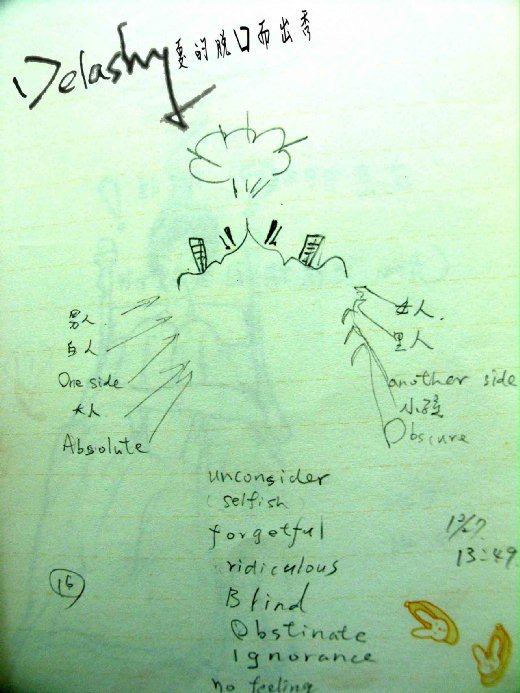 Delashy 戛的脱口而出秀
男人
白人
One side
大人
Absolute
女人.
黑人
another side
小孩
Obscure
unconsider
selfish
forgetful
ridiculous
Blind
Obstinate
Ignorance
no feeling
13:49
16